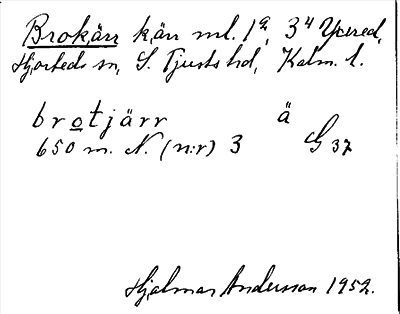 Brokärr kärr ml. 1ª, 3⁴ Ycered,
Hjorteds sn, S. Tjusts hd, Kalm. l.
brotjärr ä
650 m. N. (n:r) 3 G 37
Hjalmar Andersson 1952.